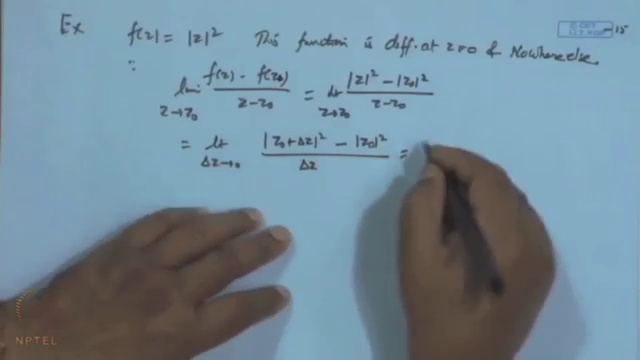 Ex f(z) = |z|² This function is diff. at z=0 & Nowhere else.
∵ lim z→z₀ (f(z) - f(z₀))/(z-z₀) = lt z→z₀ (|z|² - |z₀|²)/(z-z₀)
= lt Δz→0 (|z₀+Δz|² - |z₀|²)/Δz =
NPTEL